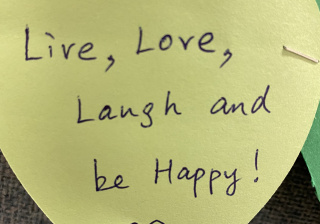 Live, Love,
Laugh and
be Happy!